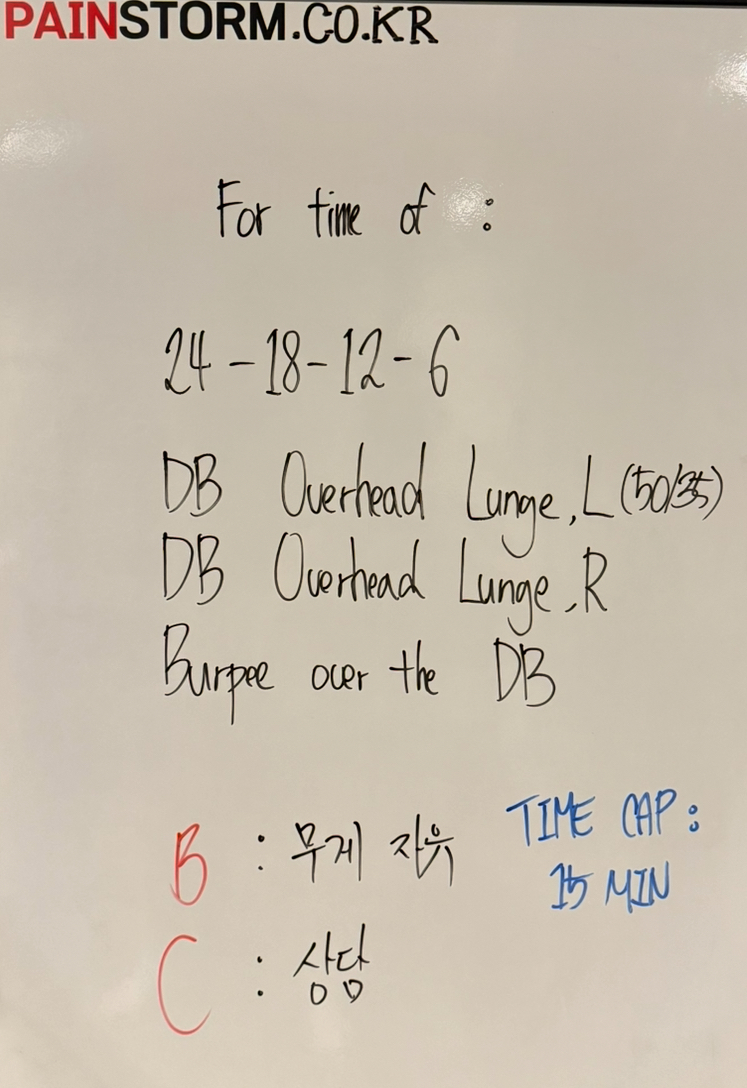 PAINSTORM.CO.KR
For time of :
24-18-12-6
DB Overhead Lunge, L (50/35)
DB Overhead Lunge, R
Burpee over the DB
B : 무게 자유
TIME CAP :
15 MIN
C : 상담